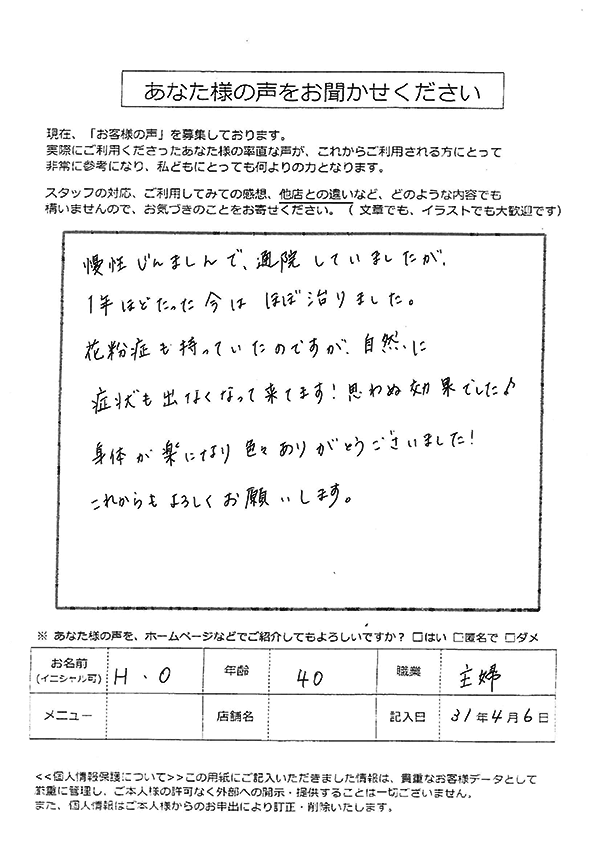 あなた様の声をお聞かせください
現在、「お客様の声」を募集しております。
実際にご利用くださったあなた様の率直な声が、これからご利用される方にとって
非常に参考になり、私どもにとっても何よりの力となります。
スタッフの対応、ご利用してみての感想、他店との違いなど、どのような内容でも
構いませんので、お気づきのことをお寄せください。（ 文章でも、イラストでも大歓迎です）
慢性じんましんで、通院していましたが、
1年ほどたった今は ほぼ治りました。
花粉症も持っていたのですが、自然に
症状も出なくなって来てます！思わぬ効果でした♪
身体が楽になり色々ありがとうございました！
これからもよろしくお願いします。
※ あなた様の声を、ホームページなどでご紹介してもよろしいですか？ □はい □匿名で □ダメ
お名前 (イニシャル可) H・O 年齢 40 職業 主婦
メニュー 店舗名 記入日 31年4月6日
<<個人情報保護について>>この用紙にご記入いただきました情報は、貴重なお客様データとして
厳重に管理し、ご本人様の許可なく外部への開示・提供することは一切ございません。
また、個人情報はご本人様からのお申出により訂正・削除いたします。